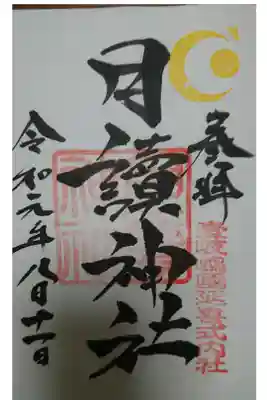 奉拝
壹岐嶋國延喜式内社
月讀神社
令和元年八月十一日